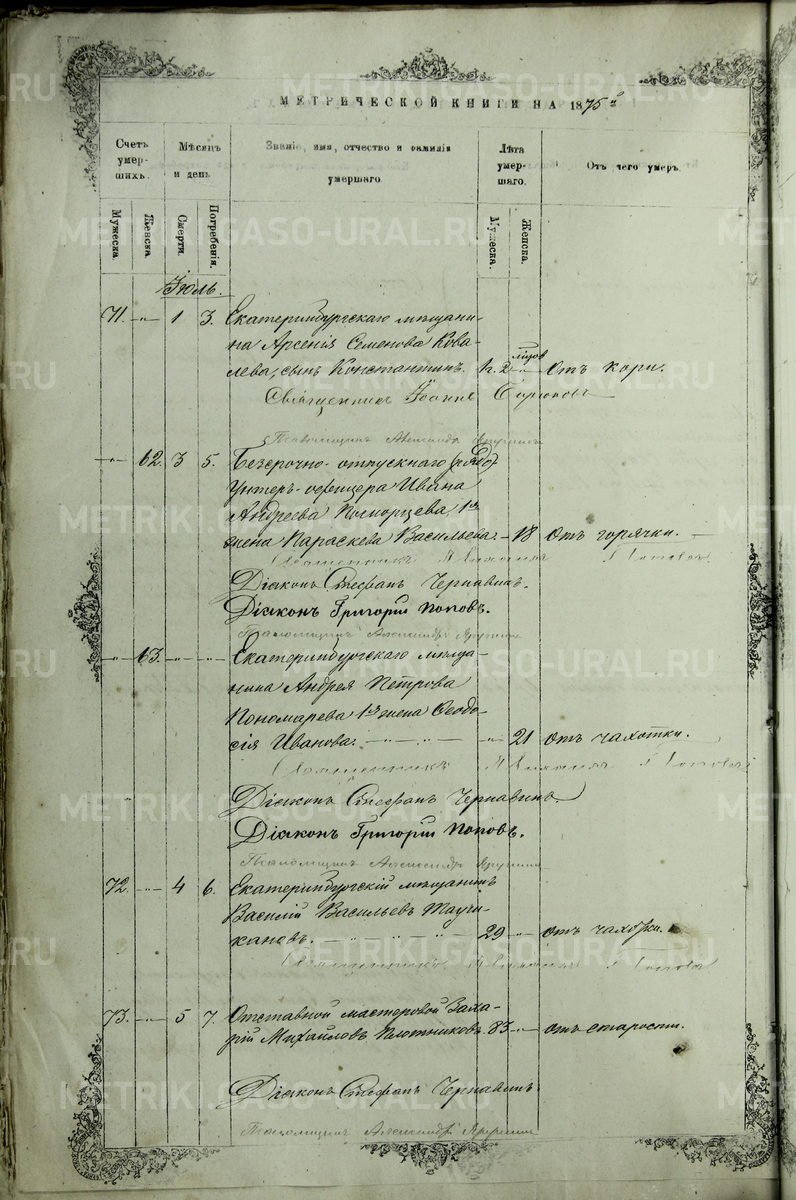 МЕТРИЧЕСКОЙ КНИГИ НА 1875й
Счетъ умер-шихъ.
Мѣсяцъ и день
Званіе, имя, отчество и фамилія умершаго.
Лѣта умер-шаго.
Отъ чего умеръ.
Мужеска.
Женска.
Смерти.
Погребенія.
Мужеска.
Женска.
Іюль.
71. -"- 1 3. Екатеринбургскаго мѣщани-
на Арсенія Семенова Кова-
лева, сынъ Константинъ. 2 отъ кори.
Священникъ Іоаннъ Бирюковъ
Псаломщикъ Александръ
-"- 62. 3 5. Безсрочно-отпускнаго
Унтеръ-офицера Ивана
Андреева Поморцева 1я
жена Параскева Васильева. - 18 отъ горячки.
Священникъ Поповъ.
Діаконъ Стефанъ Чернавинъ.
Діаконъ Григорій Поповъ.
Псаломщикъ Александръ
-"- 63. -"- -"- Екатеринбургскаго мѣща-
нина Андрея Петрова
Пономарева 1я жена Ѳеодо-
сія Иванова. -"- 21 отъ чахотки.
Священникъ Поповъ
Діаконъ Стефанъ Чернавинъ.
Діаконъ Григорій Поповъ.
Псаломщикъ Александръ
72. -"- 4 6. Екатеринбургскій мѣщанинъ
Василій Васильевъ
29 -"- отъ чахотки.
Священникъ Поповъ
73. -"- 5 7. Отставной мастеровой Заха-
рій Михайловъ Плотниковъ. 83 -"- отъ старости.
Діаконъ Стефанъ Чернавинъ
Псаломщикъ Александръ
METRIKI.GASO-URAL.RU